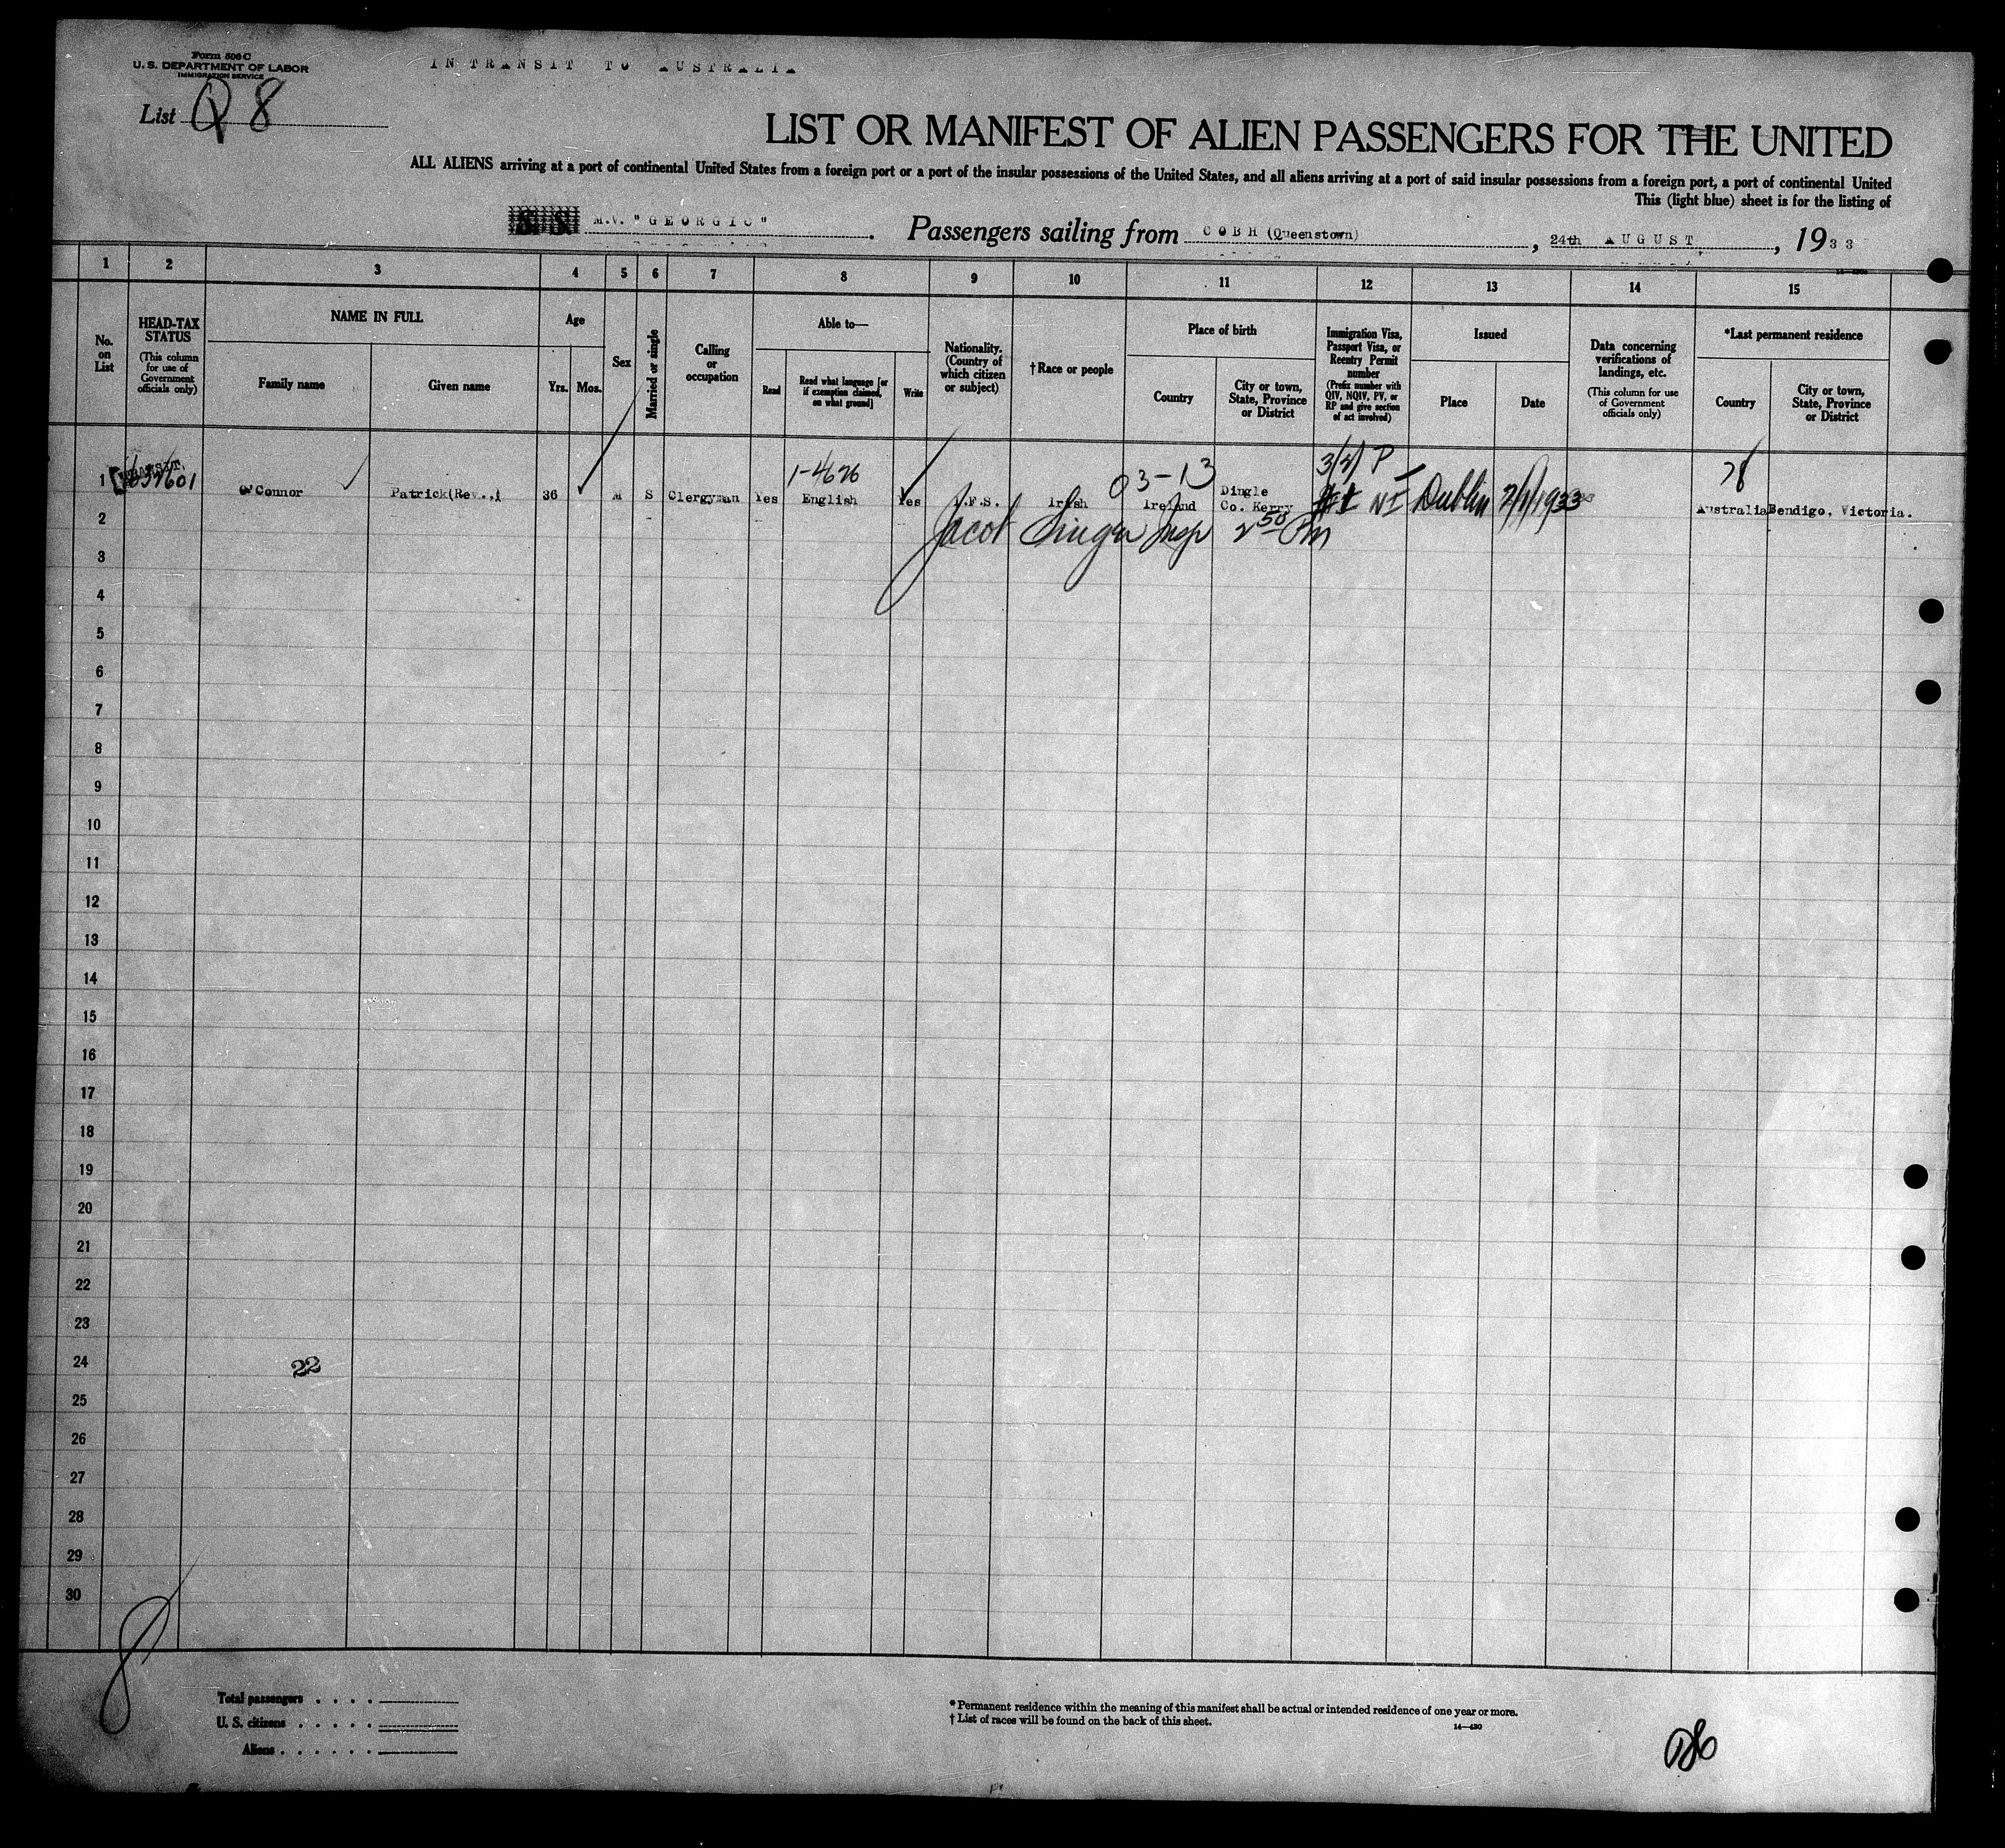 Form 500 C
U. S. DEPARTMENT OF LABOR
IMMIGRATION SERVICE
IN TRANSIT TO AUSTRALIA
List Q 8
LIST OR MANIFEST OF ALIEN PASSENGERS FOR THE UNITED
ALL ALIENS arriving at a port of continental United States from a foreign port or a port of the insular possessions of the United States, and all aliens arriving at a port of said insular possessions from a foreign port, a port of continental United
This (light blue) sheet is for the listing of
S. S. M.V. "GEORGIC". Passengers sailing from COBH (Queenstown), 24th AUGUST, 1933
1 2 3 4 5 6 7 8 9 10 11 12 13 14 15
No. on List
HEAD-TAX STATUS
(This column for use of Government officials only)
NAME IN FULL
Family name
Given name
Age
Yrs.
Mos.
Sex
Married or single
Calling or occupation
Able to—
Read
Read what language [or if exemption claimed, on what ground]
Write
Nationality. (Country of which citizen or subject)
†Race or people
Place of birth
Country
City or town, State, Province or District
Immigration Visa, Passport Visa, or Reentry Permit number
(Prefix number with QIV, NQIV, PV, or RP and give section of act involved)
Issued
Place
Date
Data concerning verifications of landings, etc.
(This column for use of Government officials only)
*Last permanent residence
Country
City or town, State, Province or District
1-4626
03-13
3/2/ P
1 TRANSIT O'Connor Patrick(Rev.) 36 M S Clergyman Yes English Yes I.F.S. Irish Ireland Dingle Co. Kerry NI Dublin 2/1/1933 Australia Bendigo, Victoria.
Jacob Singer Insp 2 50 Pm
2
3
4
5
6
7
8
9
10
11
12
13
14
15
16
17
18
19
20
21
22
23
24
22
25
26
27
28
29
30
8
Total passengers
U. S. citizens
Aliens
* Permanent residence within the meaning of this manifest shall be actual or intended residence of one year or more.
† List of races will be found on the back of this sheet.
14—430